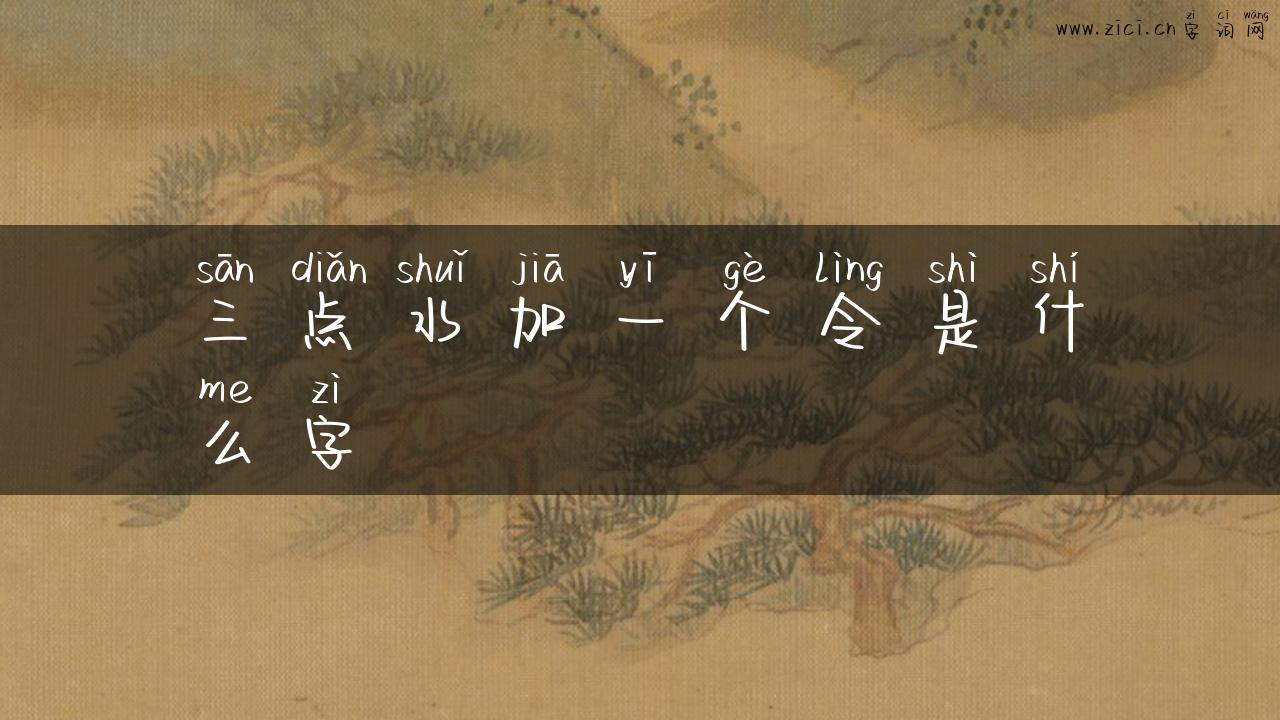 zì cí wǎng
www.zici.cn 字 词 网
sān diǎn shuǐ jiā yī gè lìng shì shí
三 点 水 加 一 个 令 是 什
me zì
么 字